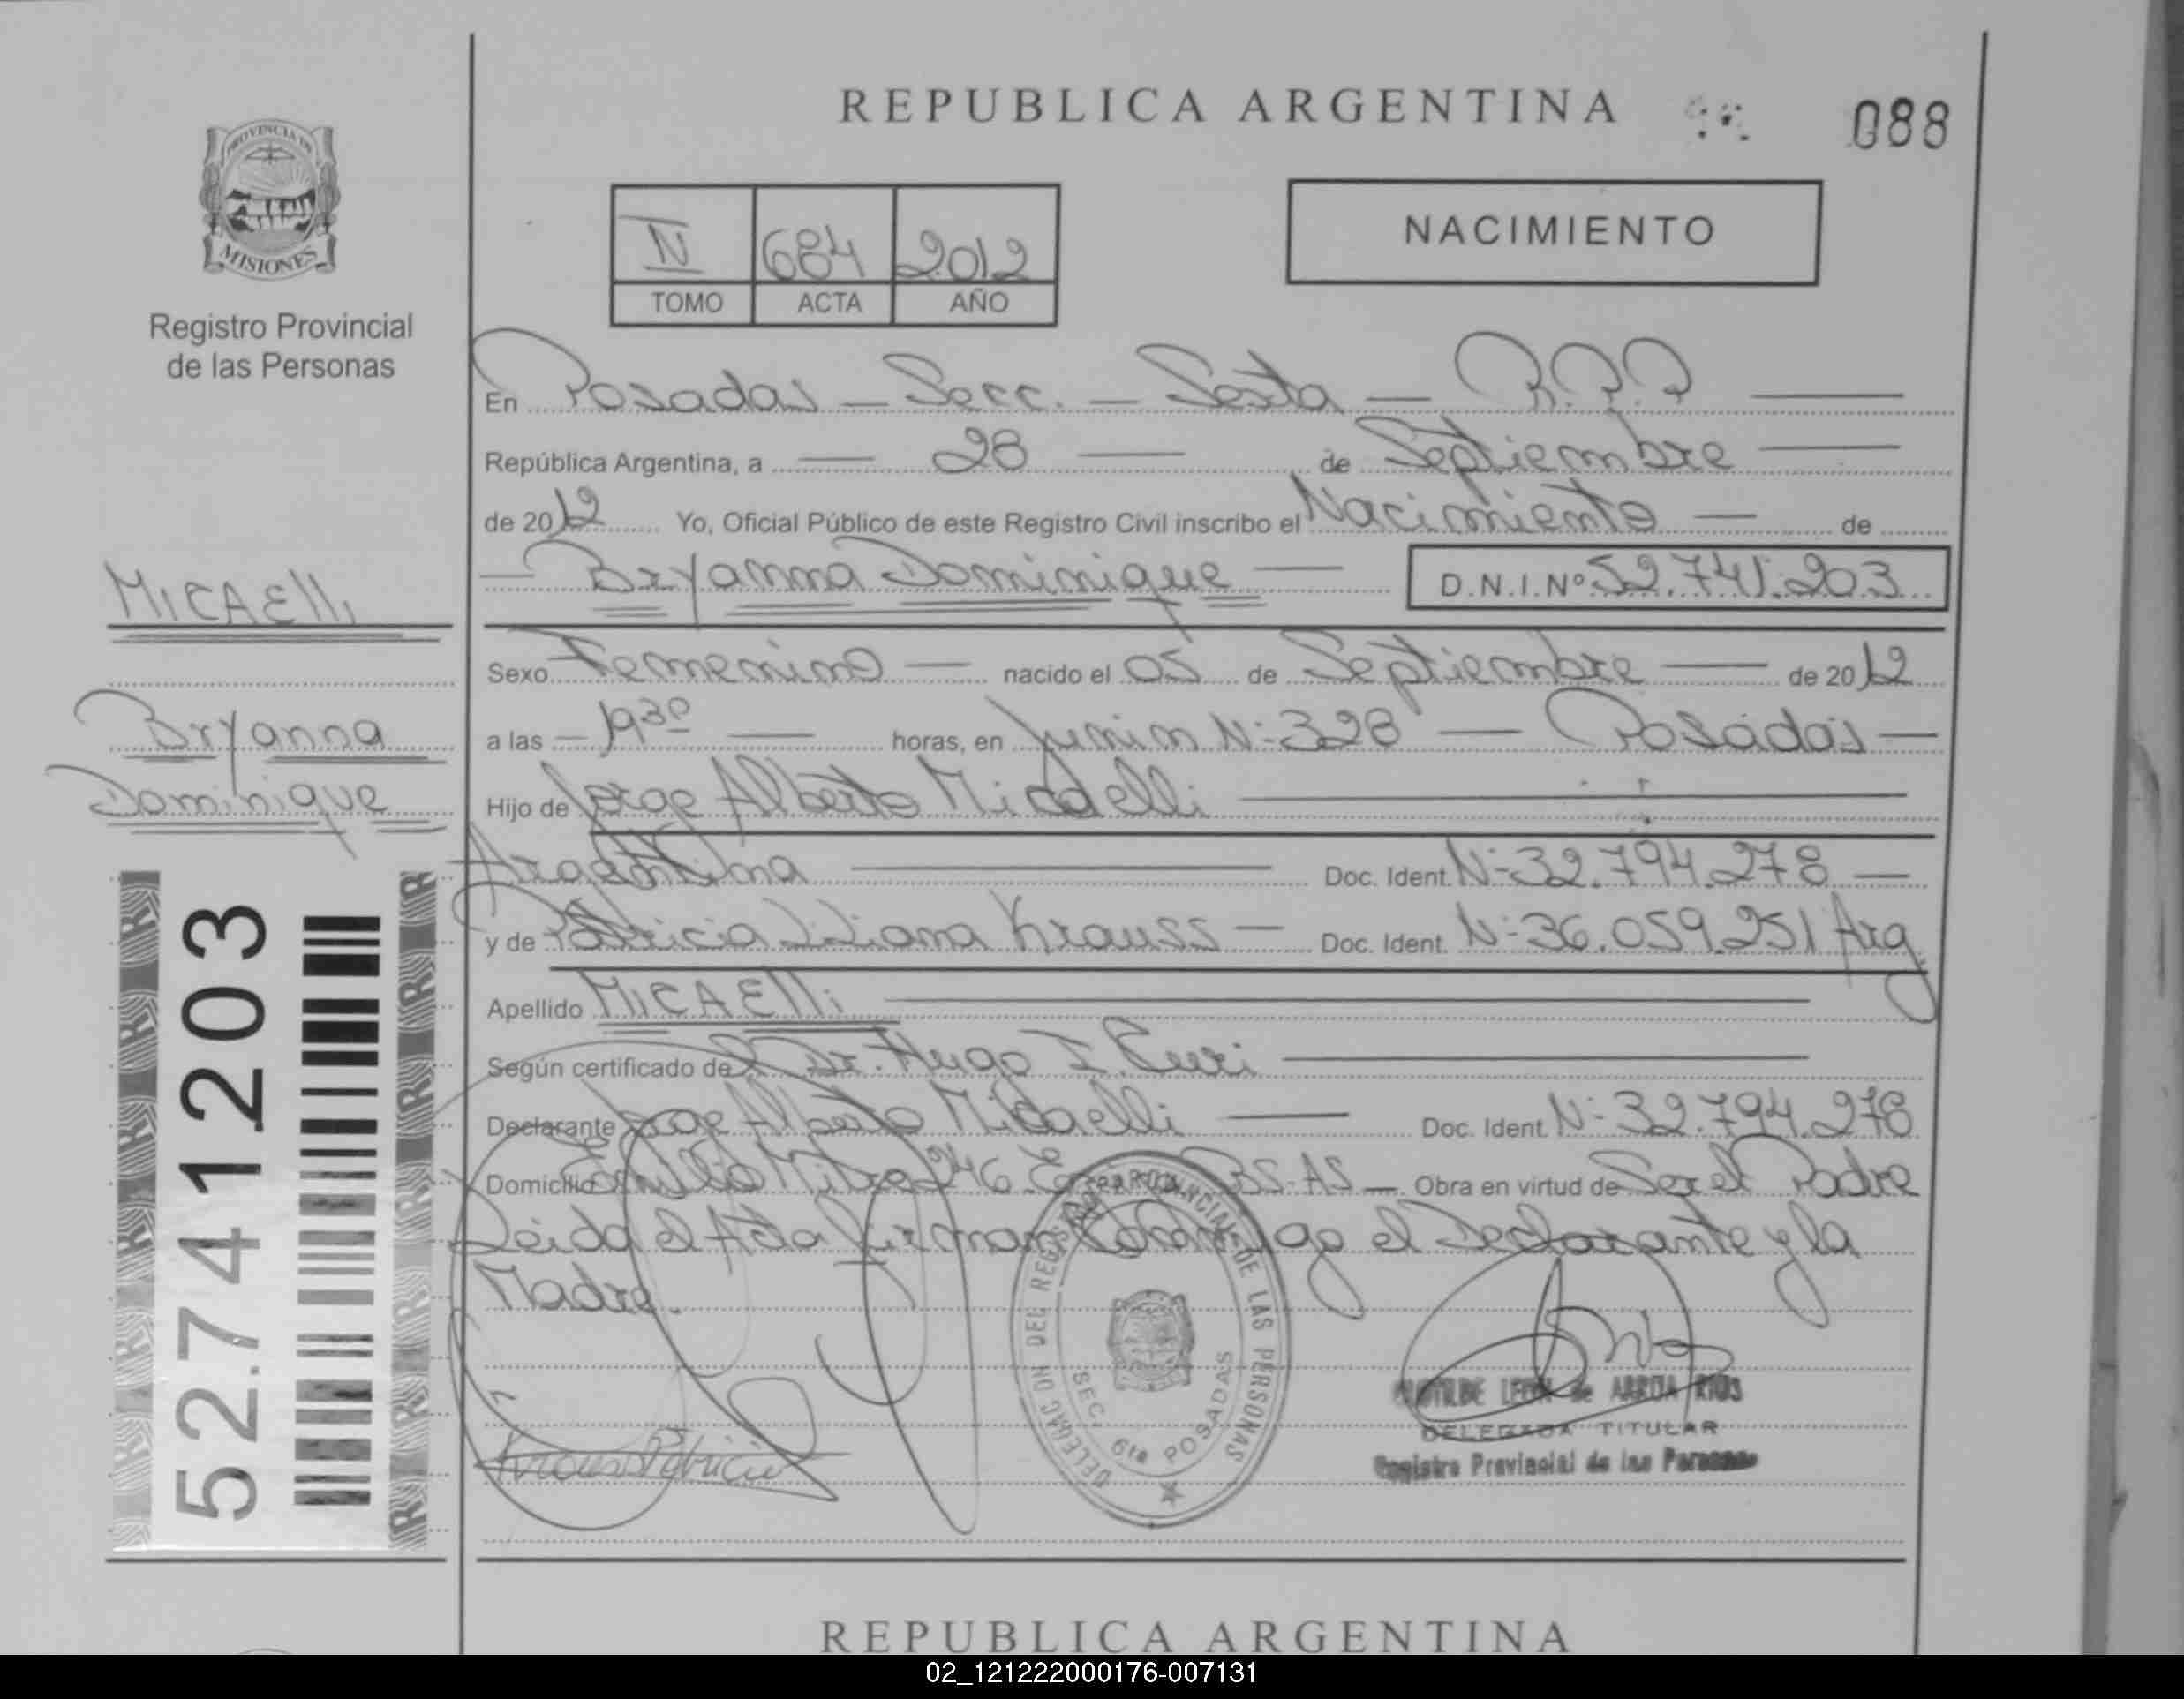 REPUBLICA ARGENTINA
088
PROVINCIA DE
MISIONES
Registro Provincial
de las Personas
684 2012
TOMO ACTA AÑO
NACIMIENTO
En Posadas - Secc. - Sexta - R.P.P
República Argentina, a 28 de Septiembre
de 2012 Yo, Oficial Público de este Registro Civil inscribo el Nacimiento de
Bryanna Dominique D.N.I.Nº 52.741.203
MICAElli
Bryanna
Dominique
52.741203
Sexo Femenino nacido el 05 de Septiembre de 2012
a las 1930 horas, en Junin Nº 328 - Posadas
Hijo de Jorge Alberto Micaelli
Argentina Doc. Ident. Nº 32.794.278
y de Patricia Liliana Krauss Doc. Ident. Nº 36.059.251 Arg
Apellido MICAElli
Según certificado de Dr. Hugo I.
Declarante Jorge Alberto Micaelli Doc. Ident. Nº 32.794.278
Domicilio Emilio Mitre 246 BS-AS Obra en virtud de Ser el Padre
Leida el Acta firman conmigo el Declarante y la
Madre.
DELEGACION DEL REGISTRO PROVINCIAL DE LAS PERSONAS
SEC. 6ta POSADAS
Krauss Patricia
DELEGADA TITULAR
Registro Provincial de las Personas
REPUBLICA ARGENTINA
02_121222000176-007131